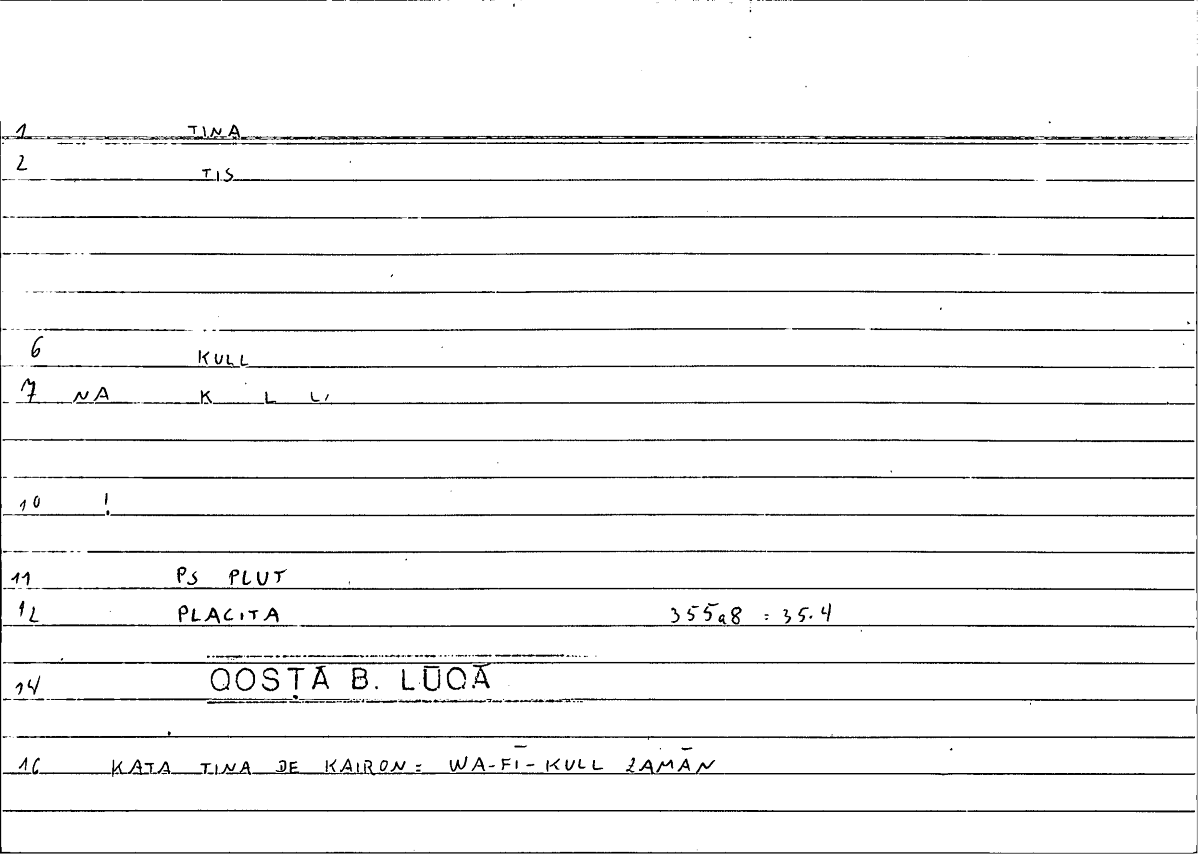 1 TINA
2 TIS
6 KULL
7 NA K L L,
10 !
11 PS PLUT
12 PLACITA 355a8 = 35.4
14 QOSṬĀ B. LŪQĀ
16 KATA TINA DE KAIRON = WA-FĪ-KULL ZAMĀN